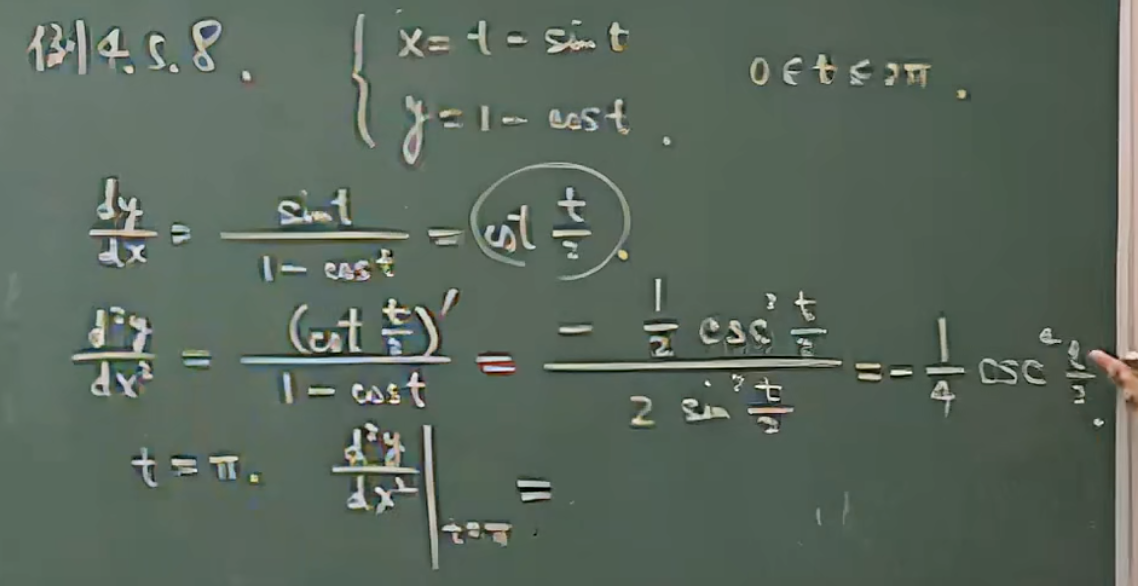 例4.5.8. { x = t - sin t
y = 1 - cos t . 0 ≤ t ≤ 2π .
dy/dx = sin t / (1 - cos t) = cot t/2 .
d²y/dx² = (cot t/2)' / (1 - cos t) = - 1/2 csc² t/2 / 2 sin² t/2 = - 1/4 csc⁴ t/2 .
t = π . d²y/dx² |t=π =